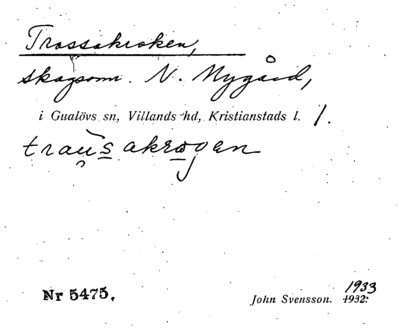 Trossakroken,
skogsom. N. Nygård,
i Gualövs sn, Villands hd, Kristianstads l. 1.
traųsakrogen
Nr 5475.
1933
John Svensson. 1932.